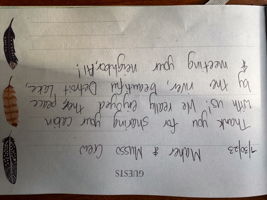 GUESTS
7/30/23 Maher & Musso Crew
Thank you for sharing your cabin
with us! We really enjoyed the peace
by the river, beautiful Detroit Lake,
& meeting your neighbor, Al!